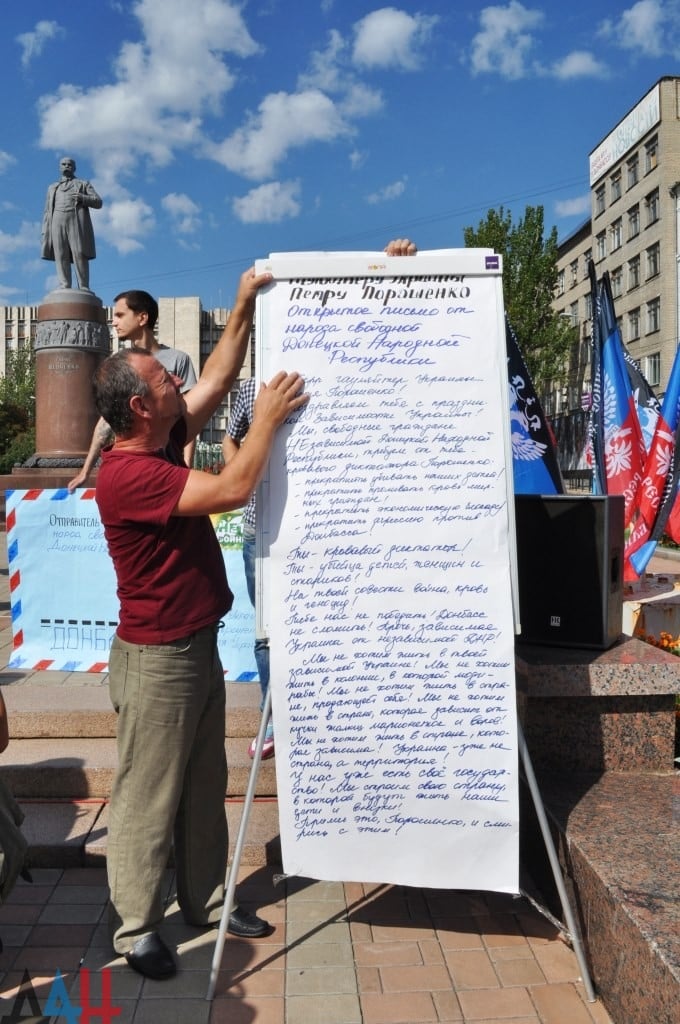 Петру Порошенко
Открытое письмо от
народа свободной
Донецкой Народной
Республики
герр гауляйтер Украины
Порошенко!
Поздравляем тебя с праздни-
Зависимости Украины!
Мы, свободные граждане
НЕзависимой Донецкой Народной
Республики, требуем от тебя -
кровавого диктатора Порошенко:
- прекратить убивать наших детей!
- прекратить проливать кровь мир-
ных граждан!
- прекратить экономическую блокаду!
- прекратить агрессию против
Донбасса!
Ты - кровавый диктатор!
Ты - убийца детей, женщин и
стариков!
На твоей совести война, кровь
и геноцид!
Тебе нас не победить! Донбасс
не сломить! Прочь, зависимая
Украина от независимой ДНР!
Мы не хотим жить в твоей
зависимой Украине! Мы не хотим
жить в колонии, в которой люди -
рабы! Мы не хотим жить в стра-
не, продающей себя! Мы не хотим
жить в стране, которая зависит от
кучки жалких марионеток и воров!
Мы не хотим жить в стране, кото-
рая зависима! Украина - уже не
страна, а территория!
У нас уже есть своё государ-
ство! Мы строим свою страну,
в которой будут жить наши
дети и внуки!
Прими это, Порошенко, и сми-
рись с этим!
Отправитель
народ
Донецкой
ДОНБ
ДАН